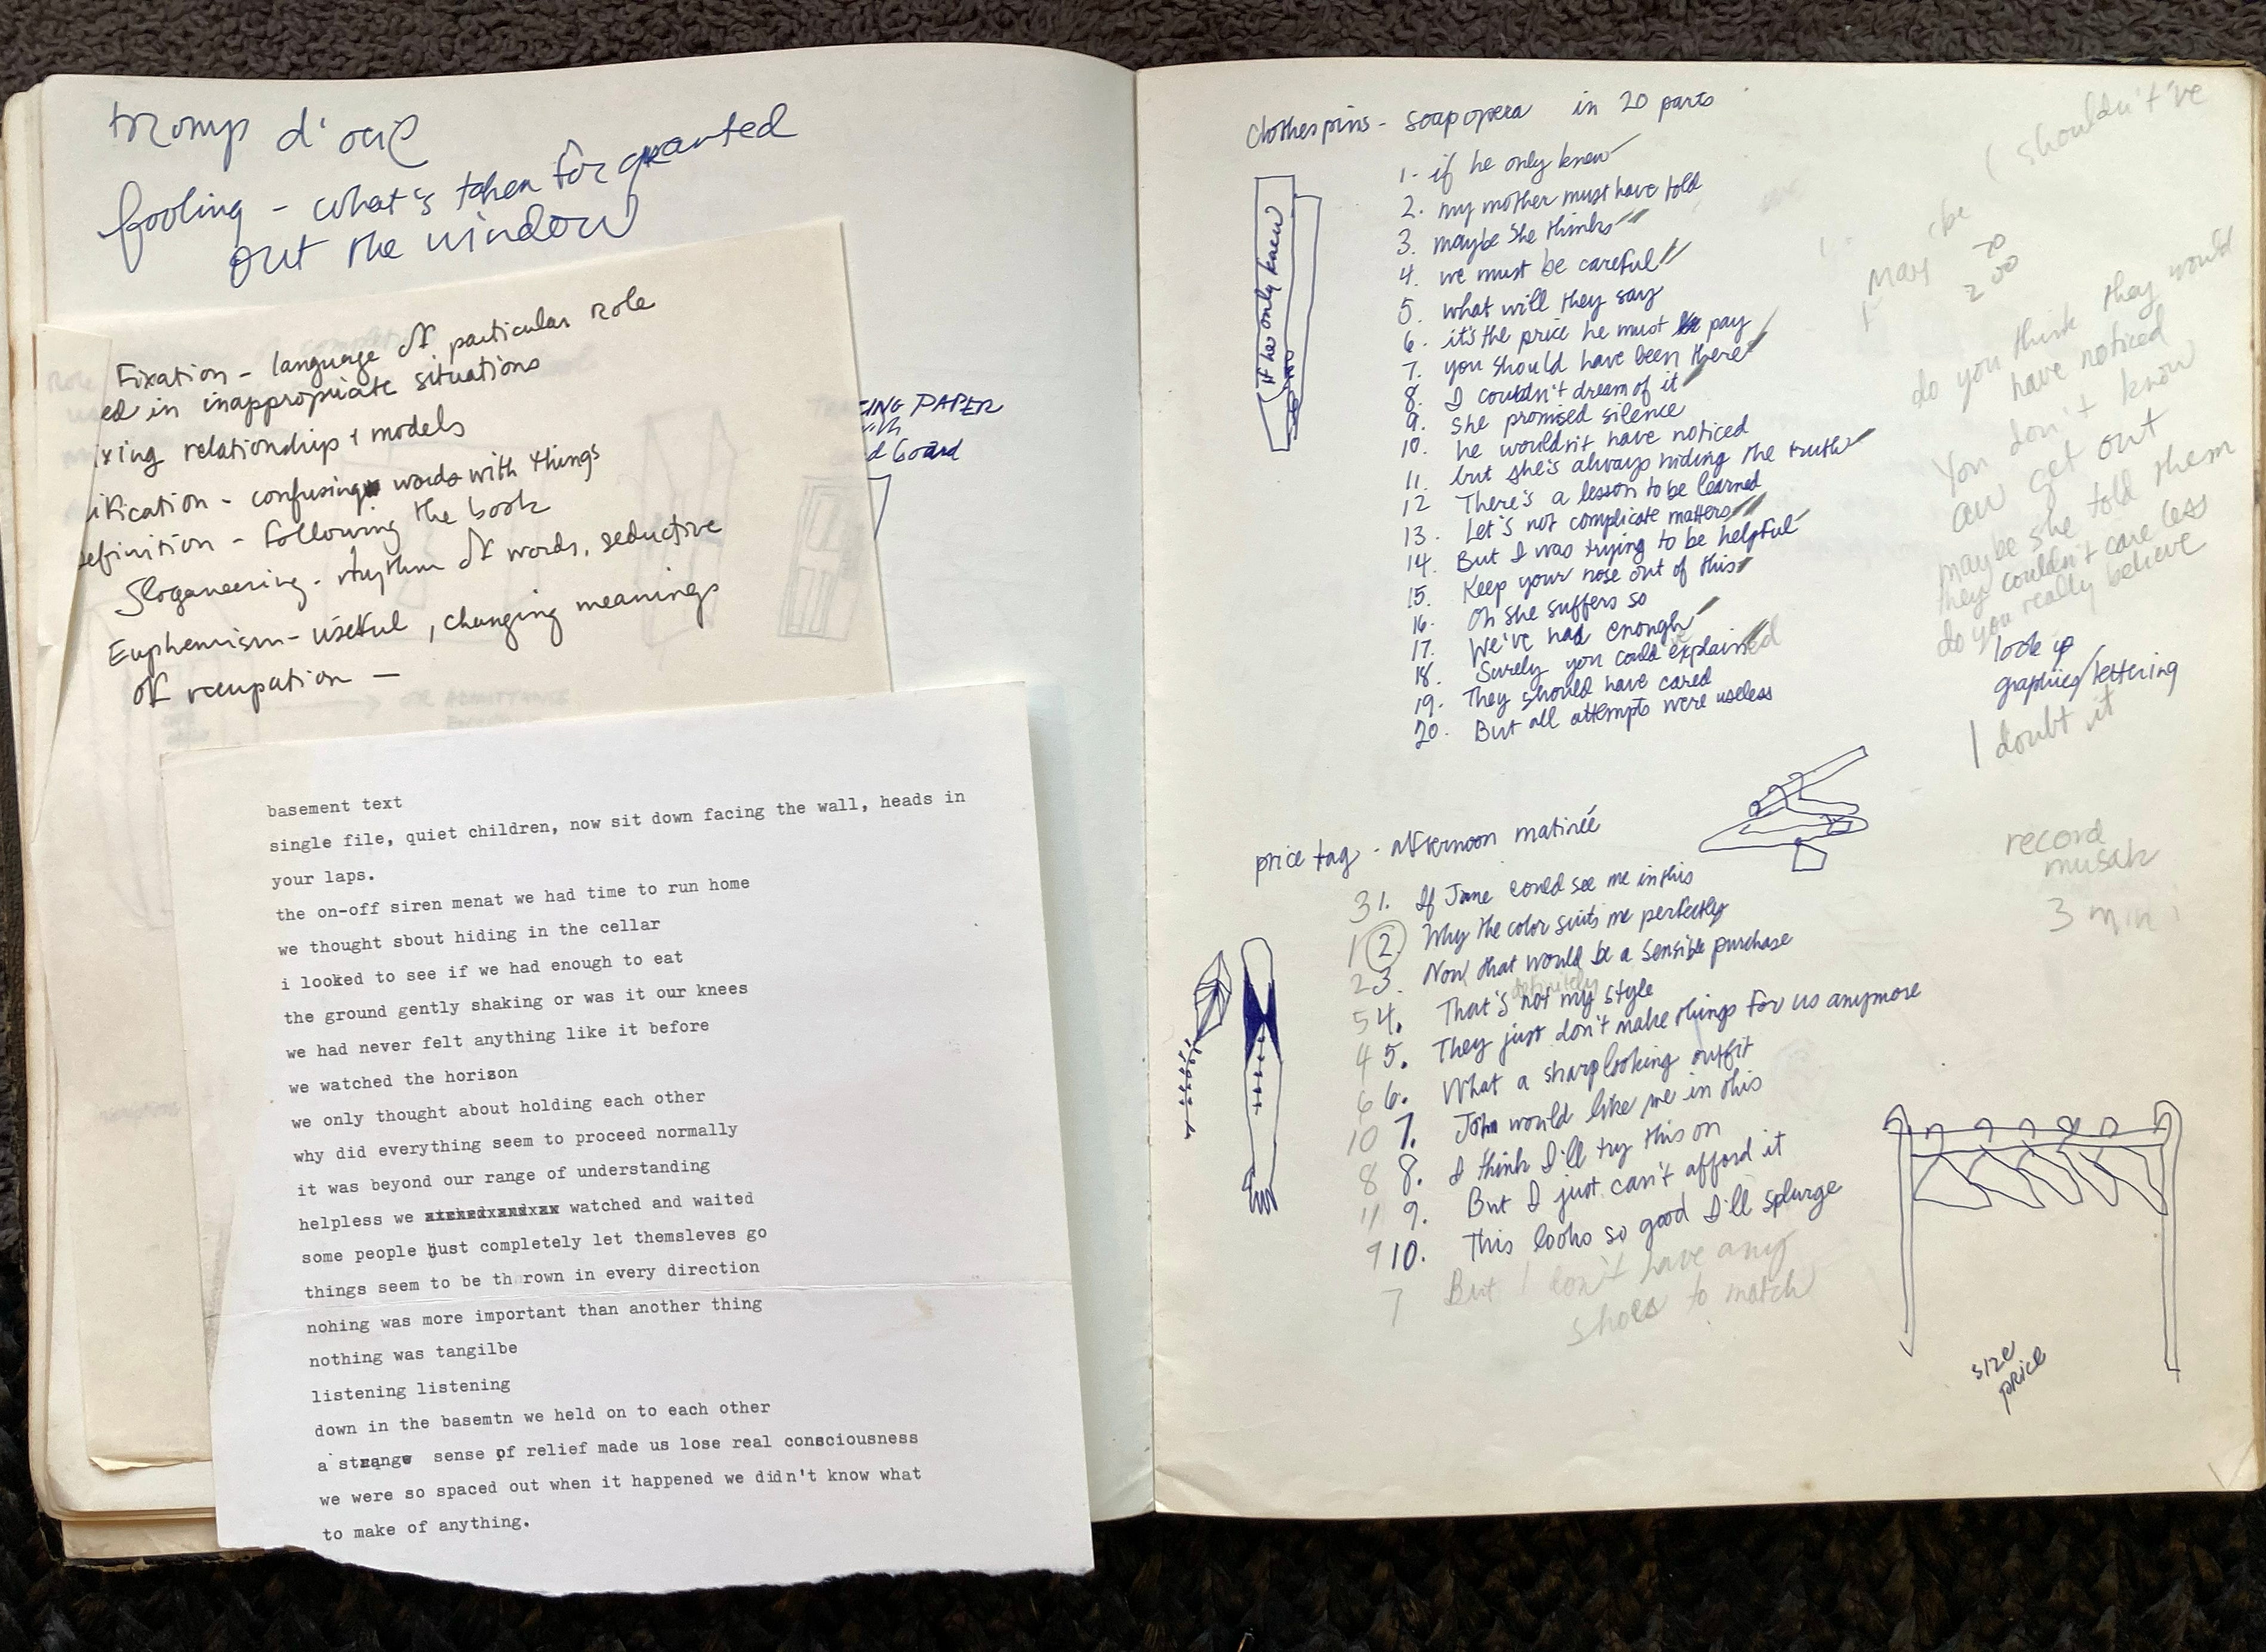 tromp d'oeil
fooling - what's taken for granted
out the window
Fixation - language of particular role
ed in inappropriate situations
ixing relationships + models
ification - confusing words with things
efinition - following the book
Sloganeering - rhythm of words, seductive
Euphemism - useful, changing meanings
of occupation —
ING PAPER
d board
OR ADMITTANCE
basement text
single file, quiet children, now sit down facing the wall, heads in
your laps.
the on-off siren menat we had time to run home
we thought sbout hiding in the cellar
i looked to see if we had enough to eat
the ground gently shaking or was it our knees
we had never felt anything like it before
we watched the horison
we only thought about holding each other
why did everything seem to proceed normally
it was beyond our range of understanding
helpless we watched and waited
some people just completely let themsleves go
things seem to be thrown in every direction
nohing was more important than another thing
nothing was tangilbe
listening listening
down in the basemtn we held on to each other
a strange sense of relief made us lose real consciousness
we were so spaced out when it happened we didn't know what
to make of anything.
clothespins - soap opera in 20 parts
if he only knew
1. if he only knew
2. my mother must have told
3. maybe she thinks
4. we must be careful
5. what will they say
6. it's the price he must pay
7. you should have been there
8. I couldn't dream of it
9. she promised silence
10. he wouldn't have noticed
11. but she's always hiding the truth
12 There's a lesson to be learned
13. Let's not complicate matters
14. But I was trying to be helpful
15. Keep your nose out of this
16. Oh she suffers so
17. We've had enough
18. Surely you could've explained
19. They should have cared
20. But all attempts were useless
I shouldn't've
May be
do you think they would
have noticed
You don't know
get out
maybe she told them
they couldn't care less
do you really believe
look up
graphics/lettering
I doubt it
price tag - afternoon matineé
3 1. If Jane could see me in this
1 2. Why the color suits me perfectly
2 3. Now that would be a sensible purchase
definitely
5 4. That's not my style
4 5. They just don't make things for us anymore
6 6. What a sharp looking outfit
10 7. John would like me in this
8 8. I think I'll try this on
11 9. But I just can't afford it
9 10. This looks so good I'll splurge
7 But I don't have any
shoes to match
record
musak
3 min
size
price